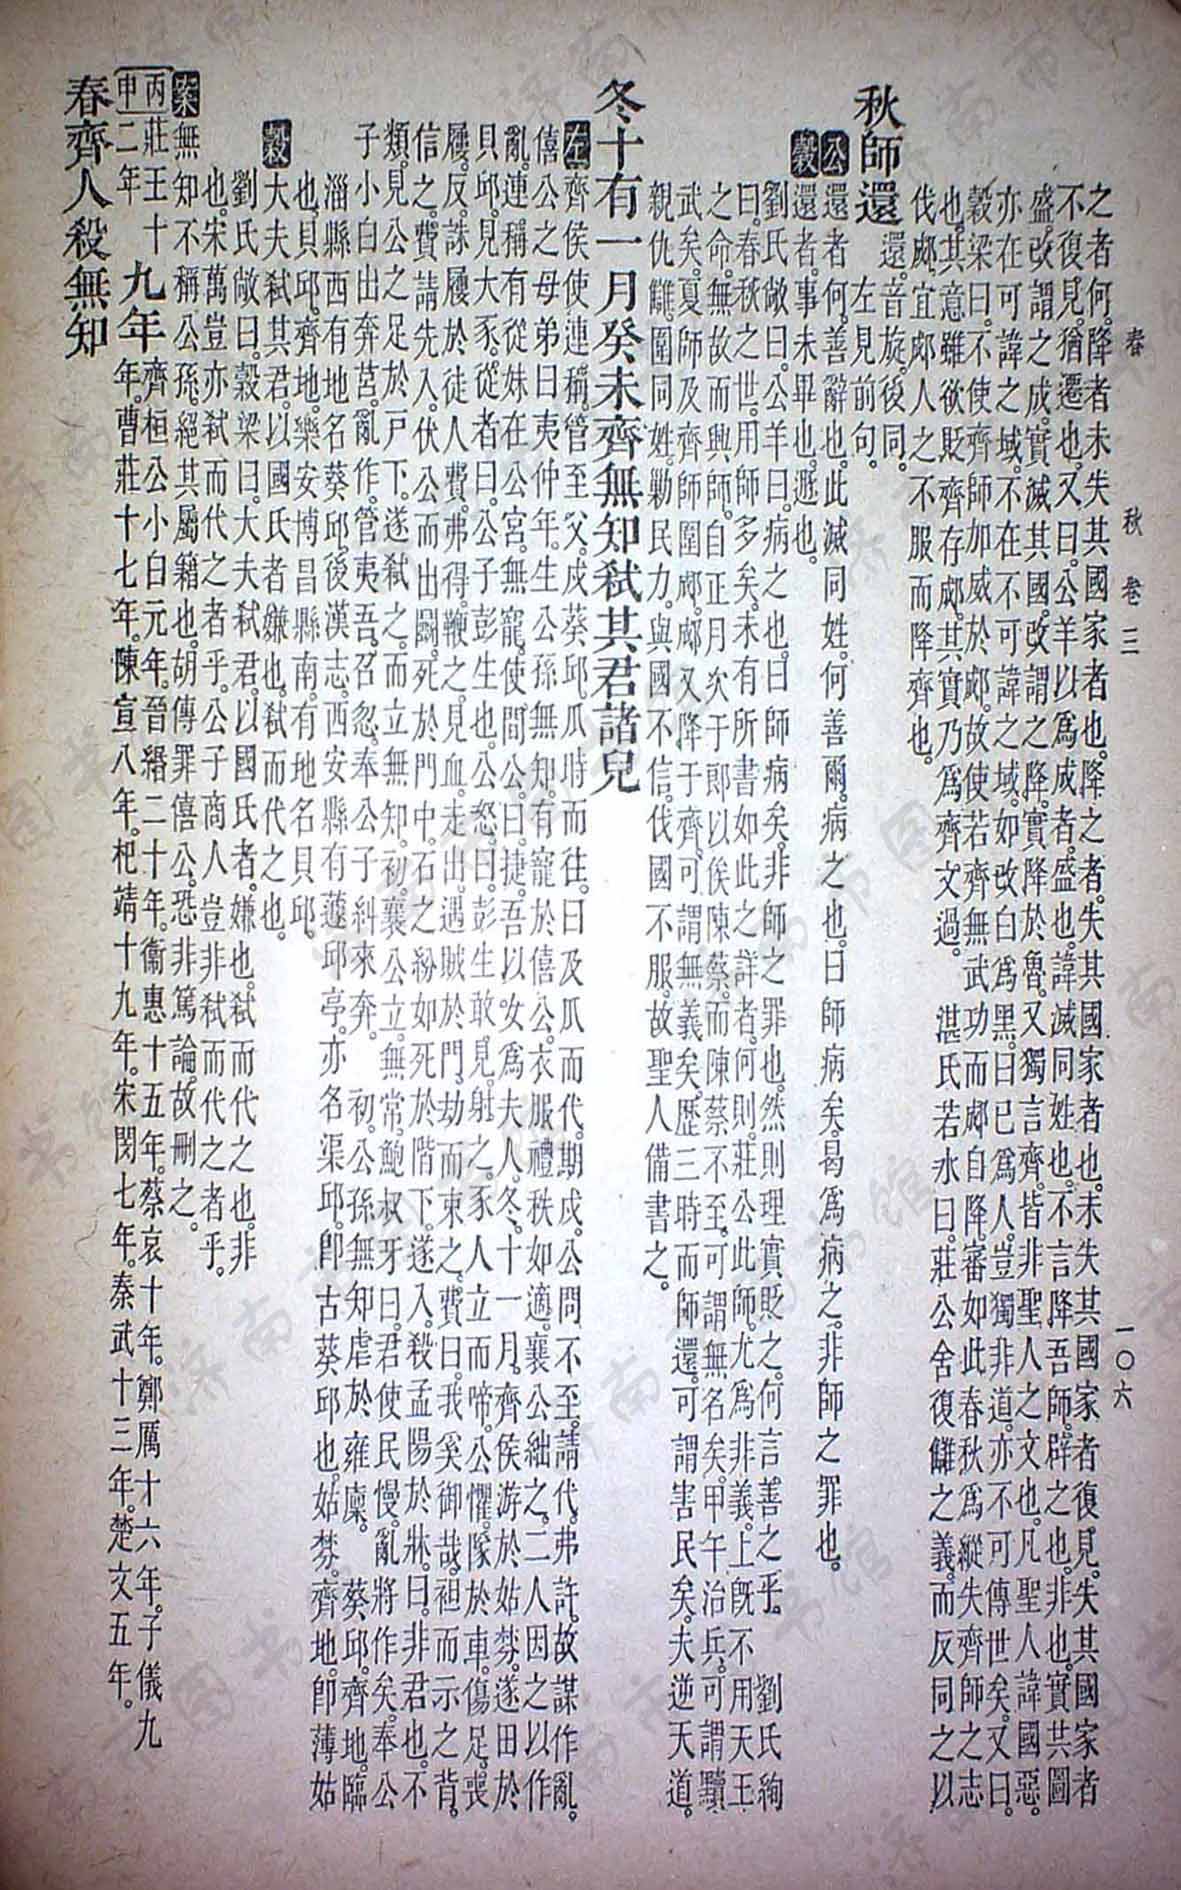 春 秋 卷三 一〇六
之者何。降者未失其國家者也。降之者。失其國家者也。未失其國家者復見。失其國家者
不復見。猶遷也。又曰。公羊以爲成者。盛也。諱滅同姓也。不言降吾師。辟之也。非也。實共圖
盛。改謂之成。實滅其國。改謂之降。實降於魯。又獨言齊。皆非聖人之文也。凡聖人諱國惡。
亦在可諱之域。不在不可諱之域。如改白爲黑。曰已爲人。豈獨非道。亦不可傳世矣。又曰。
穀梁曰。不使齊師加威於郕。故使若齊無武功而郕自降。審如此春秋爲縱失齊師之志
也。其意雖欲貶齊存郕。其實乃爲齊文過。 湛氏若水曰。莊公舍復讎之義。而反同之以
伐郕。宜郕人之不服而降齊也。
秋師還 還。音旋。後同。
左見前句。
公 還者何。善辭也。此滅同姓。何善爾。病之也。曰師病矣。曷爲病之。非師之罪也。
穀 還者。事未畢也。遯也。
劉氏敞曰。公羊曰。病之也。曰師病矣。非師之罪也。然則理實貶之。何言善之乎。 劉氏絢
曰。春秋之世。用師多矣。未有所書如此之詳者。何則。莊公此師。尤爲非義。上旣不用天王
之命。無故而興師。自正月次于郎以俟陳蔡。而陳蔡不至。可謂無名矣。甲午治兵。可謂黷
武矣。夏師及齊師圍郕。郕又降于齊。可謂無義矣。歷三時而師還。可謂害民矣。夫逆天道。
親仇讎。圍同姓。勦民力。與國不信。伐國不服。故聖人備書之。
冬十有一月癸未齊無知弒其君諸兒
左 齊侯使連稱管至父。戍葵邱。瓜時而往。曰及瓜而代。期戍。公問不至。請代。弗許。故謀作亂。
僖公之母弟曰夷仲年。生公孫無知。有寵於僖公。衣服禮秩如適。襄公絀之。二人因之以作
亂。連稱有從妹在公宮。無寵。使間公。曰。捷。吾以女爲夫人。冬。十一月。齊侯游於姑棼。遂田於
貝邱。見大豕。從者曰。公子彭生也。公怒曰。彭生敢見。射之。豕人立而啼。公懼。隊於車。傷足。喪
屨。反。誅屨於徒人費。弗得。鞭之。見血。走出。遇賊於門。劫而束之。費曰。我奚御哉。袒而示之背。
信之。費請先入。伏公而出鬬。死於門中。石之紛如死於階下。遂入。殺孟陽於牀。曰。非君也。不
類。見公之足於戶下。遂弒之。而立無知。初。襄公立。無常。鮑叔牙曰。君使民慢。亂將作矣。奉公
子小白出奔莒。亂作。管夷吾。召忽。奉公子糾來奔。 初。公孫無知虐於雍廩。 葵邱。齊地。臨
淄縣西有地名葵邱。後漢志。西安縣有蘧邱亭。亦名渠邱。卽古葵邱也。姑棼。齊地。卽薄姑
也。貝邱。齊地。樂安博昌縣南。有地名貝邱。
穀 大夫弒其君。以國氏者。嫌也。弒而代之也。
劉氏敞曰。穀梁曰。大夫弒君。以國氏者。嫌也。弒而代之也。非
也。宋萬豈亦弒而代之者乎。公子商人豈非弒而代之者乎。
案 無知不稱公孫。絕其屬籍也。胡傳罪僖公。恐非篤論。故刪之。
丙申 莊王十二年 九年 齊桓公小白元年。晉緡二十年。衞惠十五年。蔡哀十年。鄭厲十六年。子儀九年。曹莊十七年。陳宣八年。杞靖十九年。宋閔七年。秦武十三年。楚文五年。
春齊人殺無知